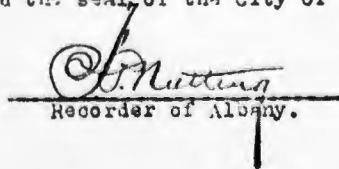 the seal of the City of
Nutting
Recorder of Albany.